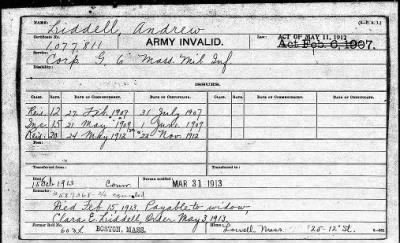 NAME: Liddell, Andrew (3-251.)
Certificate No. 1077811 ARMY INVALID. Law: ACT OF MAY 11, 1912 Act Feb 6, 1907.
Service: Corp. G, 6" Mass. Mil Inf
Disability:
ISSUES.
CLASS. RATE. DATE OF COMMENCEMENT. DATE OF CERTIFICATE. CLASS. RATE. DATE OF COMMENCEMENT. DATE OF CERTIFICATE.
Reis. 12 27 Feb. 1907 31 July 1907
Inc 15 21 May 1909 1 June 1909
Reis. 20 24 May 1912 22 Nov. 1912
Transferred from Transferred to
1913 Conn Person notified MAR 31 1913
Died Feb 15, 1913. Payable to widow,
Clara E. Liddell, Order May 3, 1913.
Former Roll No. BOSTON, MASS. Lowell, Mass. 25-12" St.